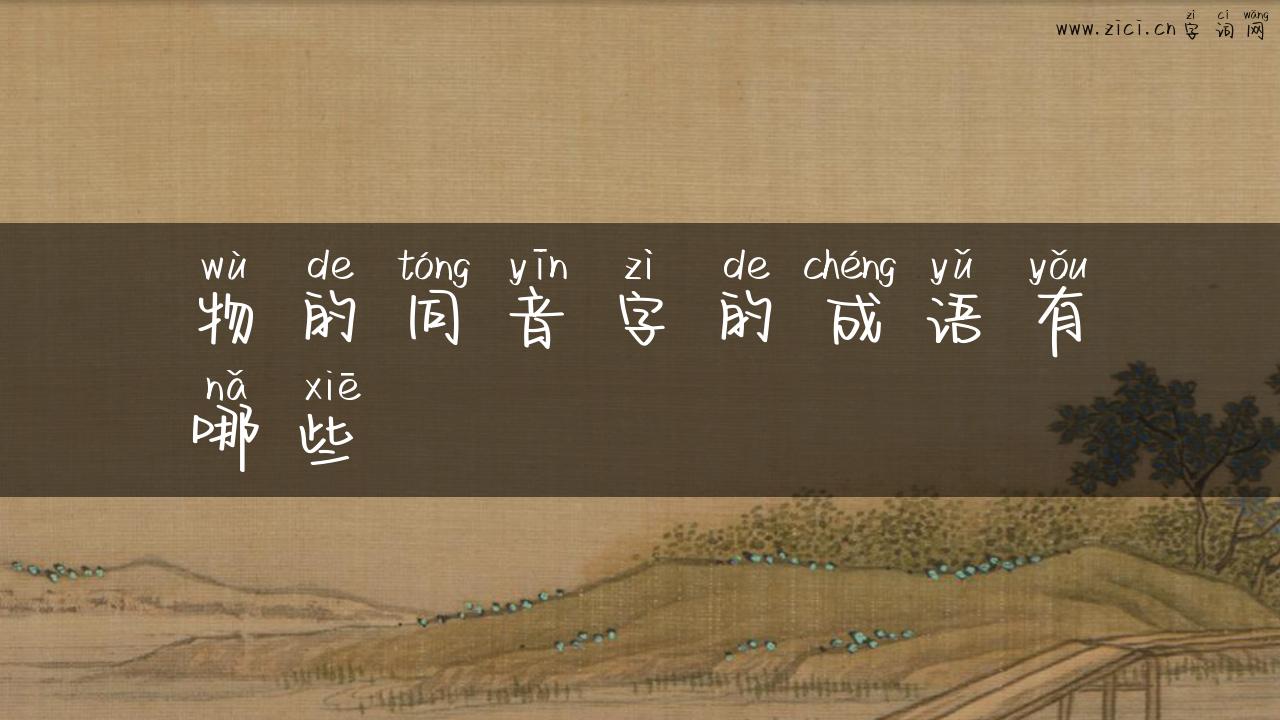 zì cí wǎng
www.zici.cn字词网
wù de tóng yīn zì de chéng yǔ yǒu
物的同音字的成语有
nǎ xiē
哪些